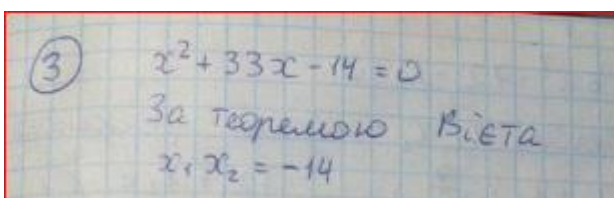 3 x² + 33x - 14 = 0
За теоремою Вієта
x₁ x₂ = -14